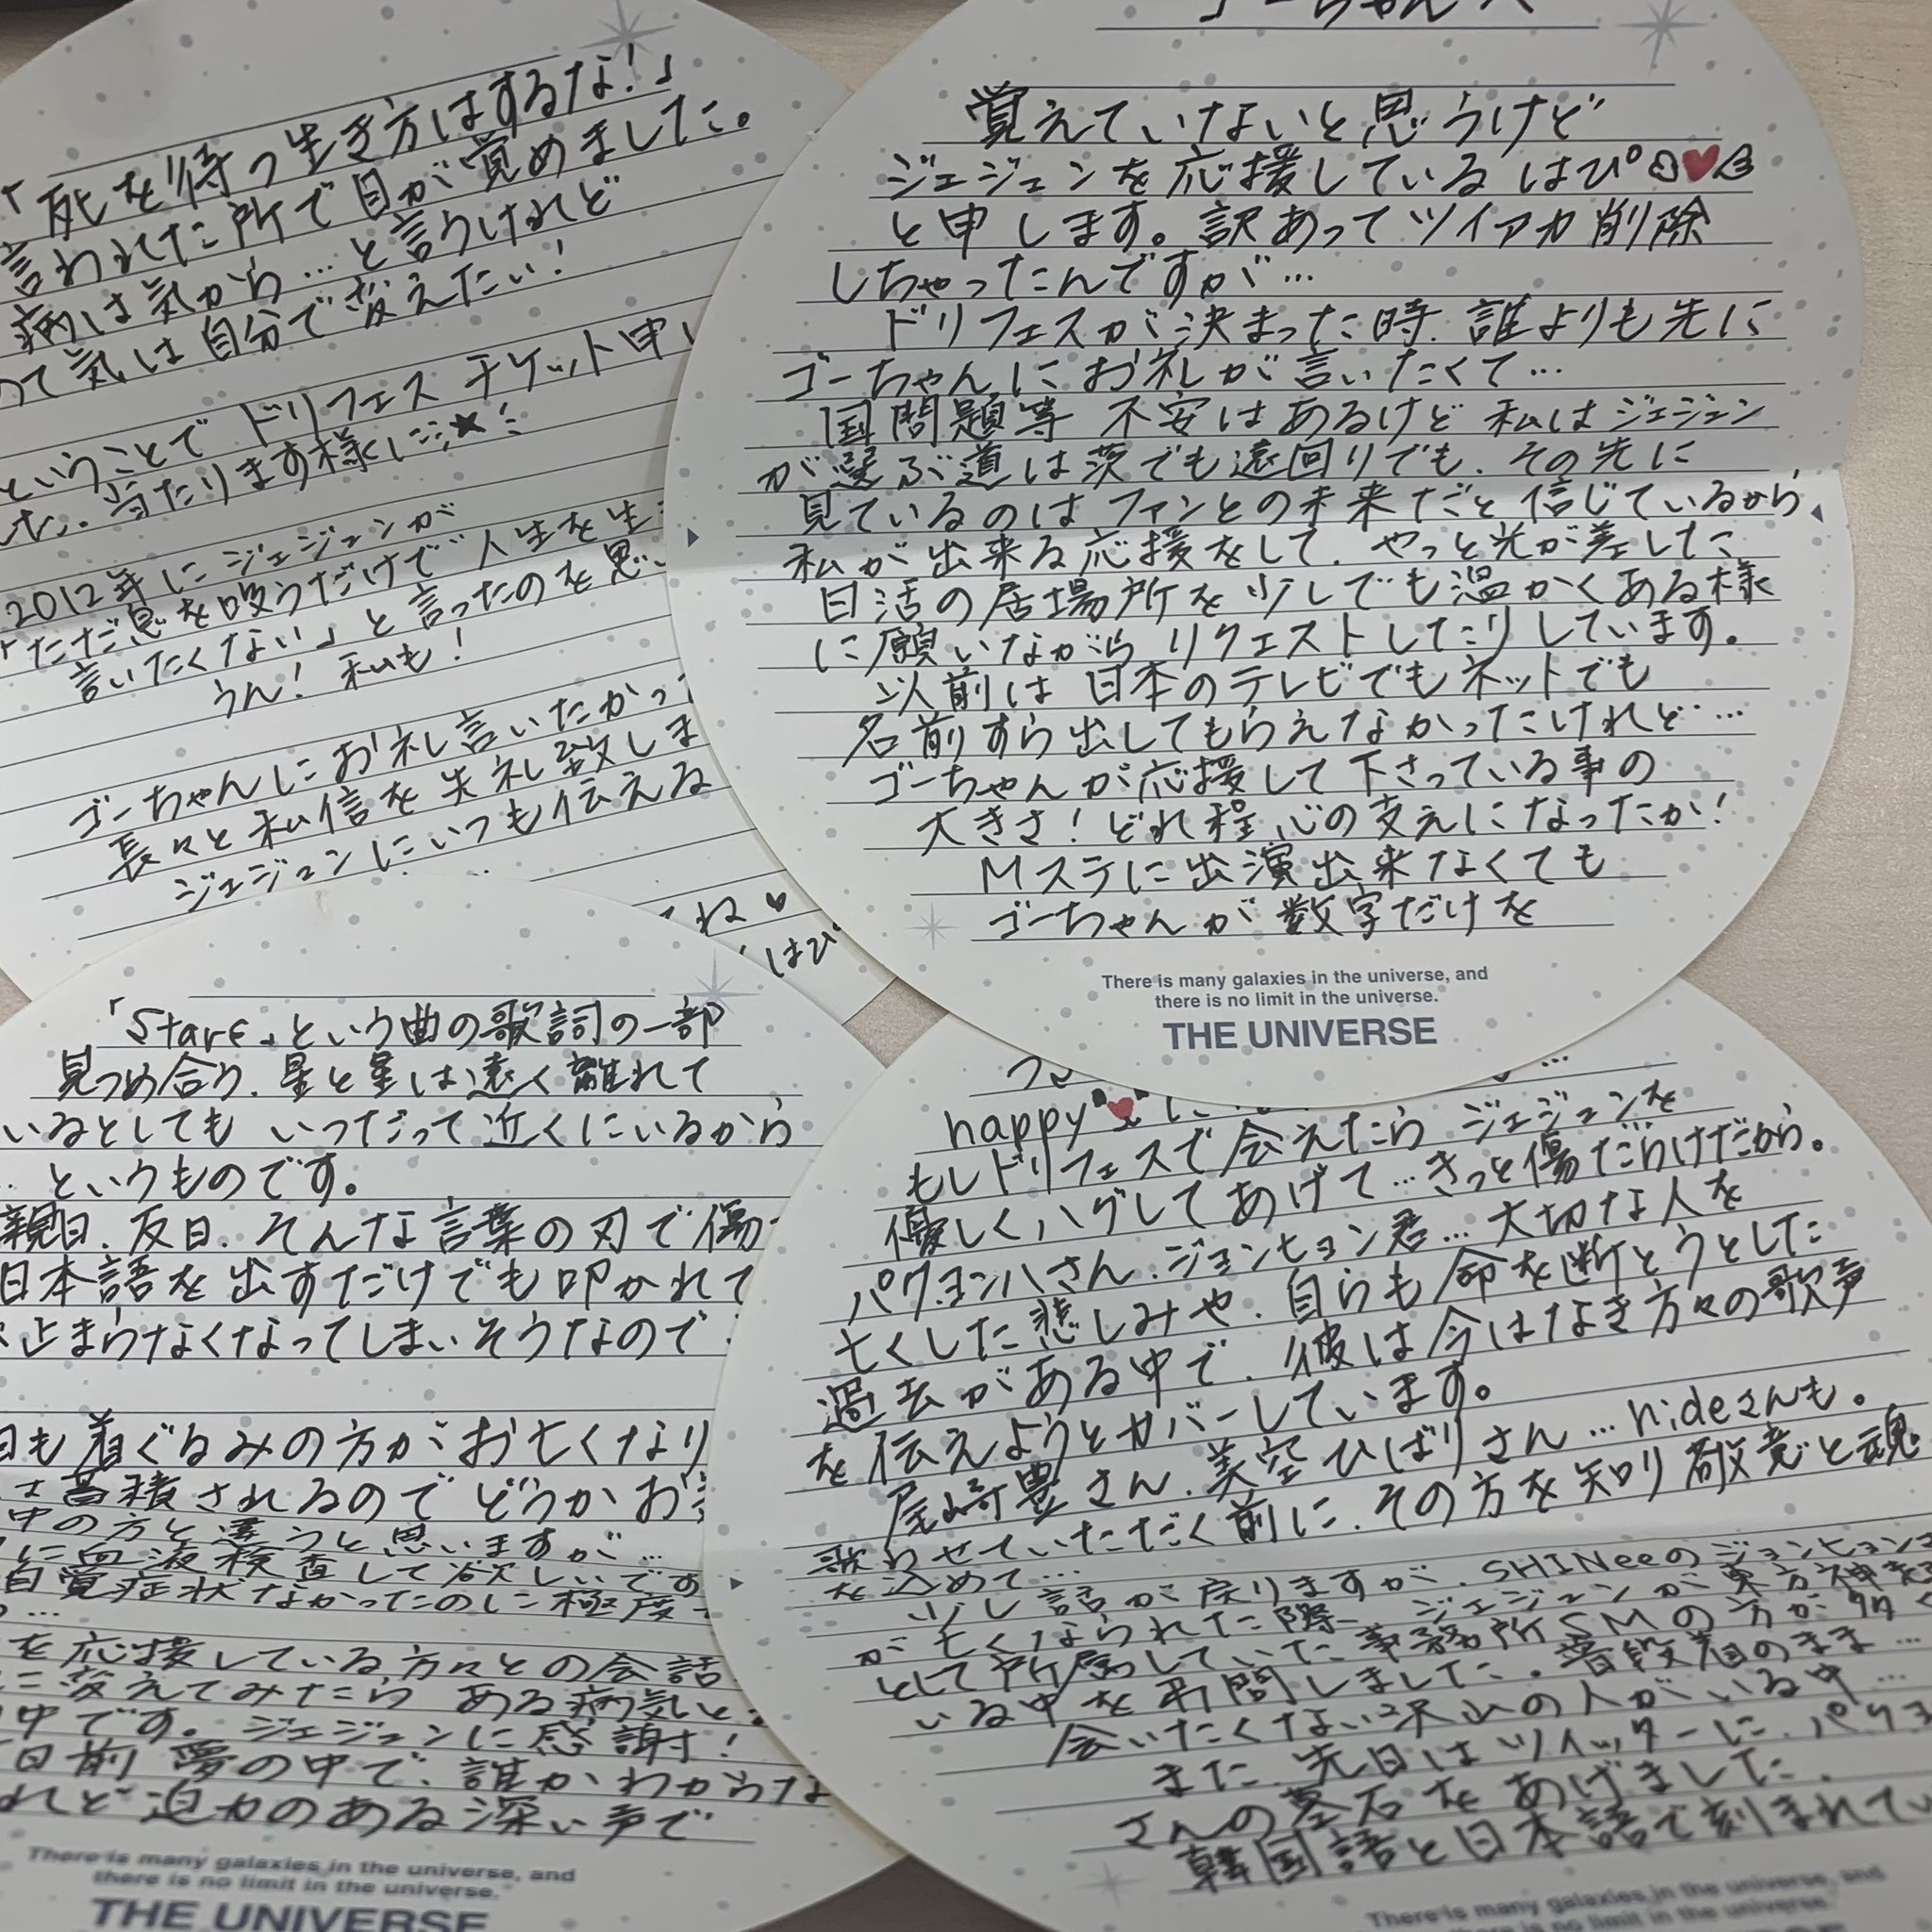 ゴーちゃんへ
覚えていないと思うけど
ジェジュンを応援しているはぴ°
と申します。訳あってツイアカ削除
しちゃったんですが…
ドリフェスが決まった時、誰よりも先に
ゴーちゃんにお礼が言いたくて…
国問題等 不安はあるけど 私はジェジュン
が選ぶ道は茨でも遠回りでも、その先に
見ているのはファンとの未来だと信じているから
私が出来る応援をして、やっと光が差した
日活の居場所を少しでも温かくある様
に願いながら リクエストしたりしています。
以前は日本のテレビでもネットでも
名前すら出してもらえなかったけれど…
ゴーちゃんが応援して下さっている事の
大きさ!どれ程心の支えになったか!
Mステに出演出来なくても
ゴーちゃんが数字だけを
There is many galaxies in the universe, and
there is no limit in the universe.
THE UNIVERSE
happy
もしドリフェスで会えたら ジェジュンを
優しくハグしてあげて…きっと傷だらけだから。
パクヨンハさん、ジョンヒョン君…大切な人を
亡くした悲しみや、自らも命を断とうとした
過去がある中で、彼は今はなき方々の歌声
を伝えようとカバーしています。
尾崎豊さん、美空ひばりさん…hideさんも。
歌わせていただく前に、その方を知り敬意と魂
を込めて…
少し話が戻りますが、SHINeeのジョンヒョン
が亡くなられた際、ジェジュンが東方神起
として所属していた事務所SMの方が
いる中を弔問しました。普段着のまま…
会いたくない沢山の人がいる中…
また、先日はツイッターに、パクヨ
さんの墓石をあげました。
韓国語と日本語で刻まれてい
There is many galaxies in the universe, and
there is no limit in the universe.
「Stars」という曲の歌詞の一部
見つめ合う、星と星は遠く離れて
いるとしても いつだって近くにいるから
というものです。
親日、反日、そんな言葉の刃で傷
日本語を出すだけでも叩かれて
止まらなくなってしまいそうなので
も着ぐるみの方がお亡くなり
蓄積されるので どうかお
中の方と違うと思いますが…
に血液検査して欲しいです
自覚症状なかったのに極度
を応援している方々との会話
に変えてみたら ある病気と
中です。ジェジュンに感謝!
日前 夢の中で、誰かわからな
れど迫力のある深い声で
There is many galaxies in the universe, and
there is no limit in the universe.
THE UNIVERSE
「死を待つ生き方はするな!」
言われた所で目が覚めました。
病は気から…と言うけれど
って気は自分で変えたい!
ということで ドリフェス チケット申し
した。当たります様に
2012年にジェジュンが
「ただ息を吸うだけで人生を生
言いたくない」と言ったのを思い
うん!私も!
ゴーちゃんにお礼言いたかっ
長々と私信を失礼致しま
ジェジュンにいつも伝える
ね
はぴ